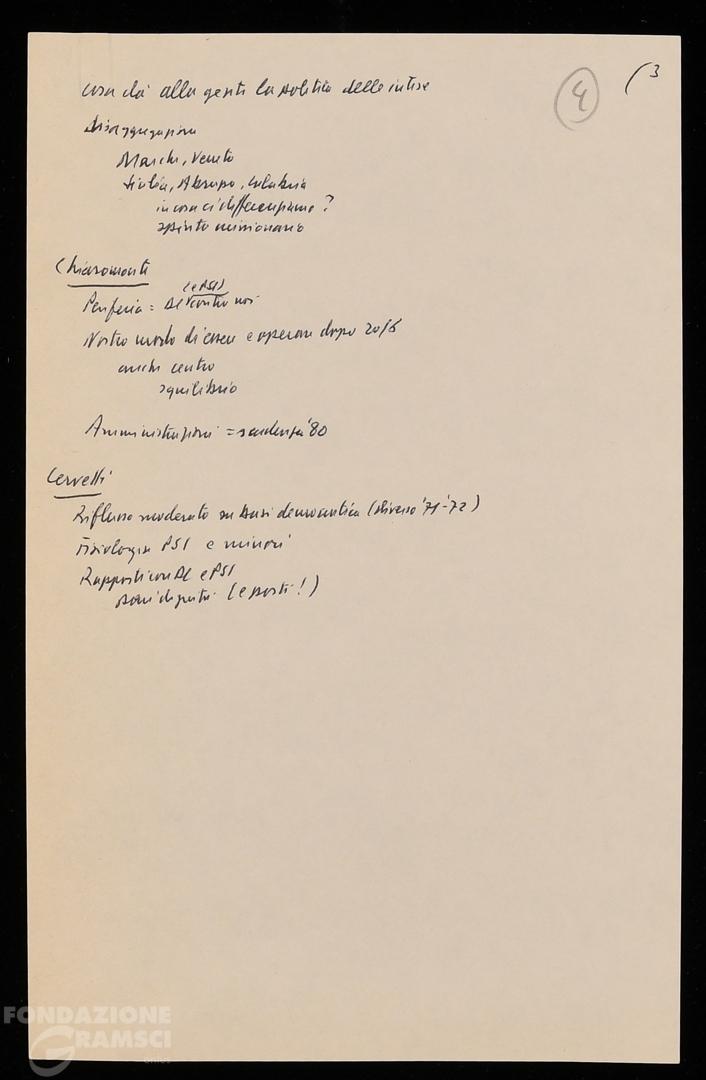 4
(3
cosa dà alla gente la politica delle intese
Disaggregazione
Marche, Veneto
Sicilia, Abruzzo, Calabria
in cosa ci differenziamo?
spirito missionario
Chiaromonte
(e PSI)
Periferia = DC contro noi
Nostro modo di essere e operare dopo 20/6
anche centro
squilibrio
Amministrazioni = scadenza '80
Cervetti
Riflusso moderato su basi democratica (diverso '71-'72)
Fisiologia PSI e minori
Rapporti con DC e PSI
(e posti!)
FONDAZIONE
GRAMSCI
onlus